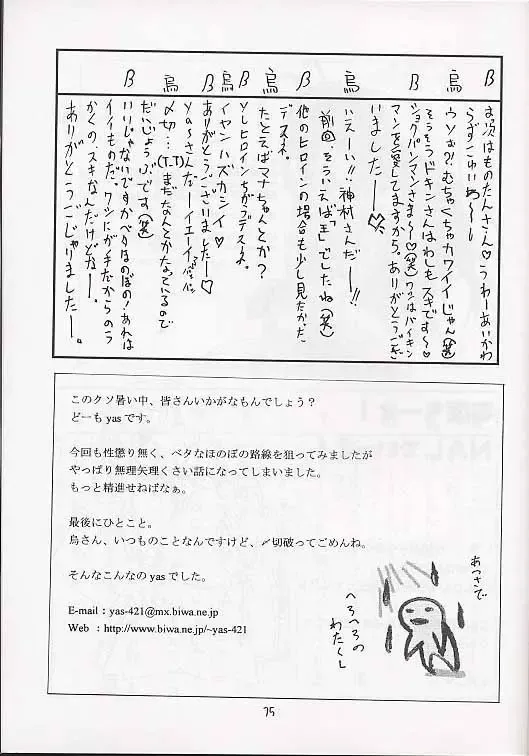 β
お次はものたんさん♡うわーあいかわらずすごいめ〜〜し
烏
ウソぉ?!むちゃくちゃカワイイじゃん(笑)
そうそうドキンさんはわしもスキです〜♡
ショクパンマンさま〜♡(笑)ワシはバイキンマンを愛してますから。ありがとうございました――♡
烏
いえーい!!神村さんだ――!!
前回、そういえば「王」でしたね(笑)
β
他のヒロインの場合も少し見たかったデスネ。
烏
たとえばマナちゃんとか?
β
ソレヒロインちがうデスネ。
烏
イヤンハズカシイ♡
β
ありがとうございました――♡
yaSさんだーイエーイ。
烏
〆切…(T.T)まだなんとかなっているのでだいじょうぶです(笑)
β
いいじゃないですかベタなほのぼの!あれはイイものだ。ワシにがテだからのうかくの、スキなんだけどなー。
ありがとうごじゃりました――。
このクソ暑い中、皆さんいかがなもんでしょう?
どーも yas です。
今回も性懲り無く、ベタなほのぼの路線を狙ってみましたが
やっぱり無理矢理くさい話になってしまいました。
もっと精進せねばなぁ。
最後にひとこと。
烏さん、いつものことなんですけど、〆切破ってごめんね。
そんなこんなの yas でした。
E-mail : yas-421@mx.biwa.ne.jp
Web : http://www.biwa.ne.jp/~yas-421
あつさで
へろへろの
わたくし
75